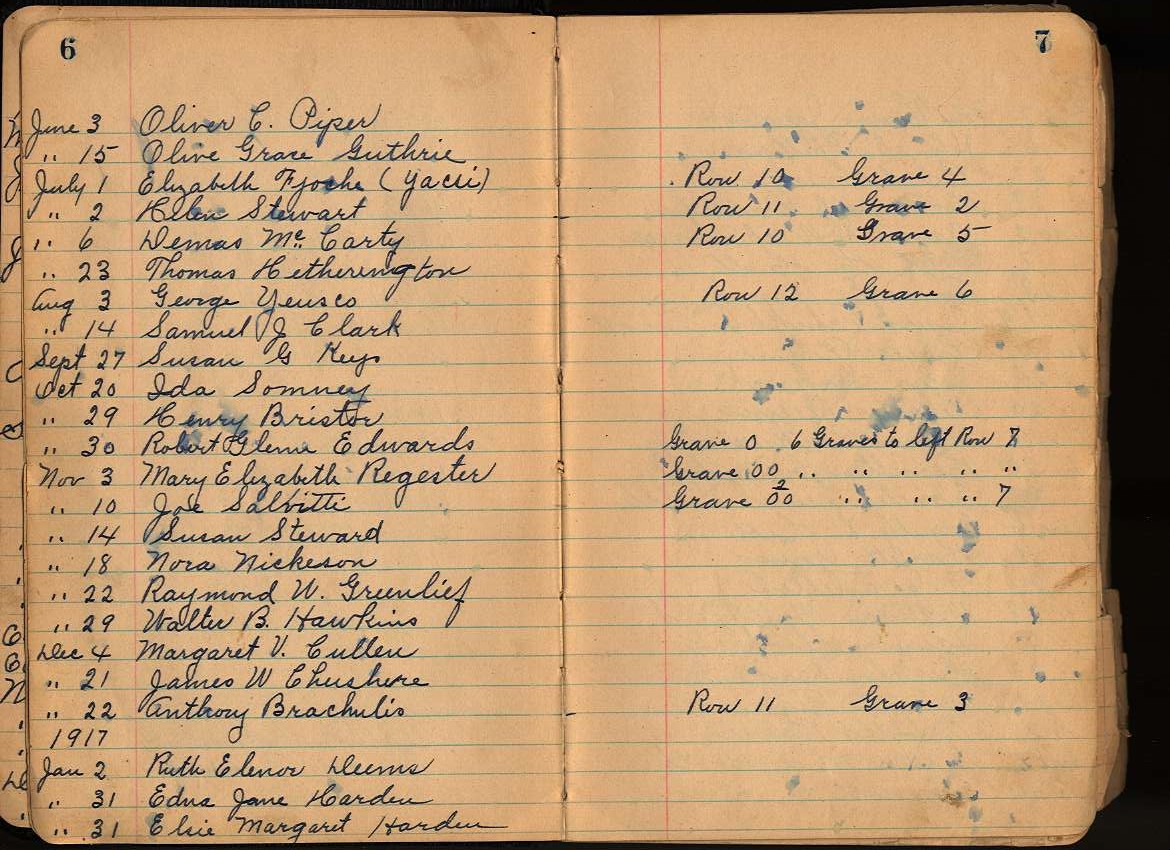 6
7
June 3 Oliver C. Piper
" 15 Olive Grace Guthrie
July 1 Elizabeth Fjoche (Yacsi) Row 10 Grave 4
" 2 Helen Stewart Row 11 Grave 2
" 6 Demas Mc Carty Row 10 Grave 5
" 23 Thomas Hetherington
Aug 3 George Yeusco Row 12 Grave 6
" 14 Samuel J Clark
Sept 27 Susan G Keys
Oct 20 Ida Somney
" 29 Henry Bristor
" 30 Robert Glenn Edwards Grave 0 6 Graves to left Row 7
Nov 3 Mary Elizabeth Regester Grave 00 " " " " "
" 10 Joe Salvitti Grave 00 2 " " " 7
" 14 Susan Steward
" 18 Nora Nickeson
" 22 Raymond W. Greenlief
" 29 Walter B. Hawkins
Dec 4 Margaret V. Cullen
" 21 James W Cheshere
" 22 Anthony Brachulis Row 11 Grave 3
1917
Jan 2 Ruth Elenor Deems
" 31 Edna Jane Harden
" 31 Elsie Margaret Harden